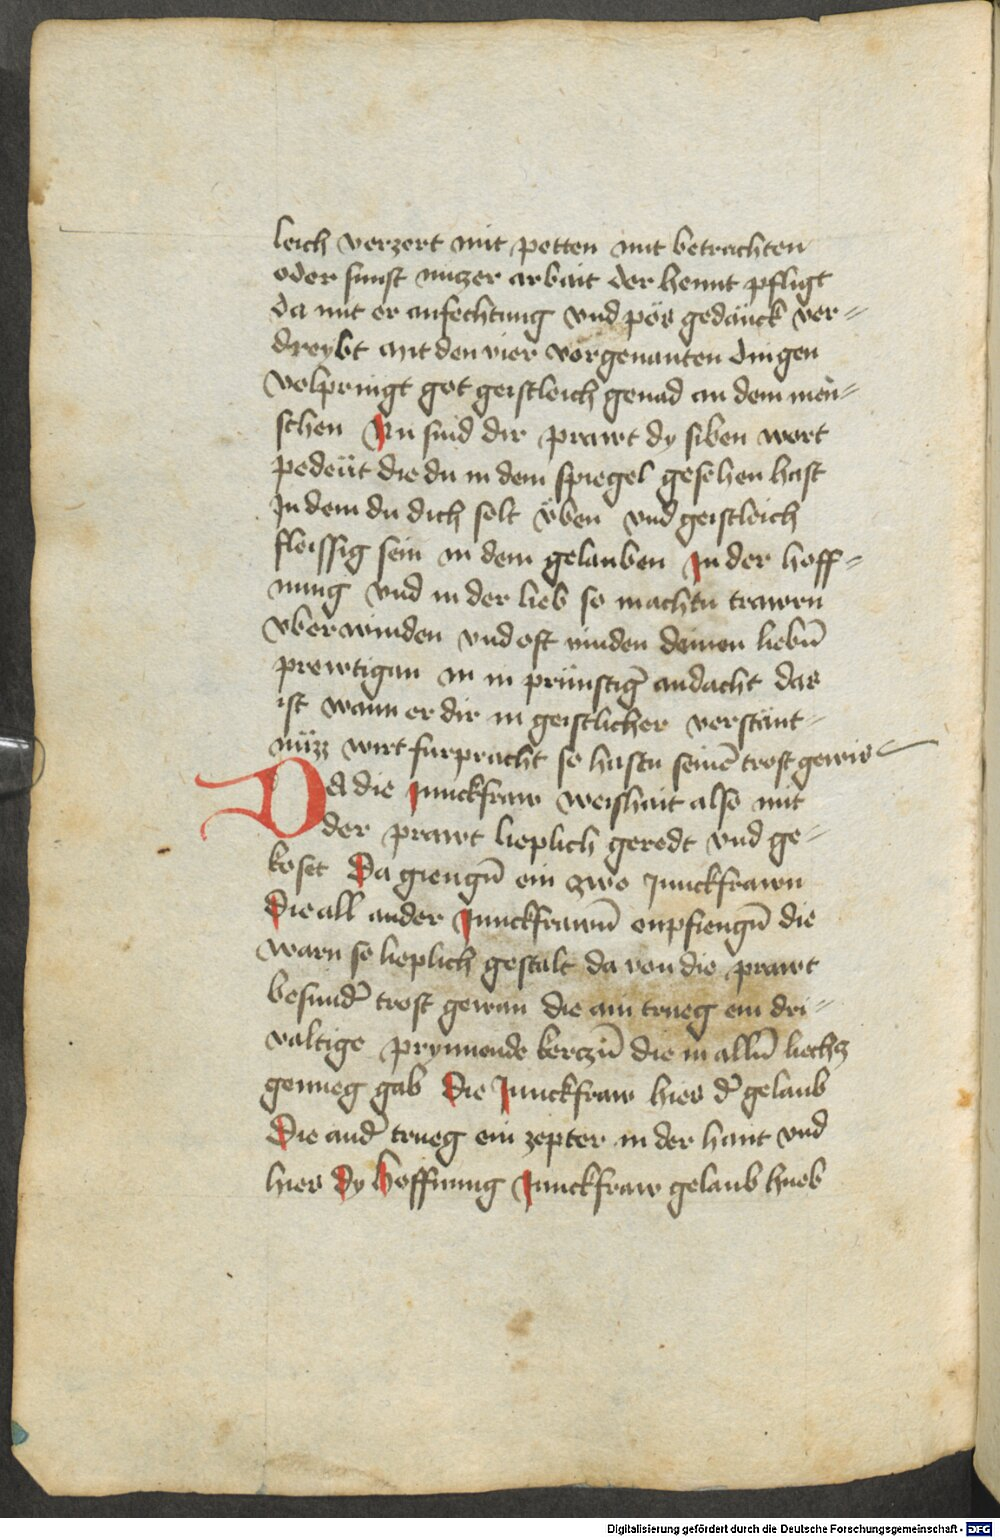 leich verzert mit petten mit betrachten
oder sunst nutzer arbait der hennt pfligt
da mit er anfechtung vnd pös gedänck ver=
dreybt Mit den vier vorgenanten dingen
volpringt got geistleich genad an dem men=
schen Nu sind dir prawt dy siben wort
pedeüt die du in dem spiegel gesehen hast
In dem du dich solt vben vnd geistleich
fleissig sein in dem gelauben In der hoff=
nung vnd in der lieb so machtu trawrn
vberwinden vnd oft vinden deinen liebn̄
prewtigan in in prünstiḡ andacht das
ist wann er dir in geistlicher verstänt=
nüzz wirt furpracht so hastu seinē trost gewis
Da die Junckfraw weishait also mit
der prawt lieplich geredt vnd ge=
koset Da giengn̄ ein zwo Junckfrawn
Die all ander Junckfrawn̄ enpfiengn̄ die
warn so lieplich gestalt da von die prawt
besund̄ trost gewan die ain trueg ein dri=
valtige prynnende kerczn̄ die in alln̄ liechz
genueg gab Die Junckfraw hies d̄ gelaub
Die and̄ trueg ein zepter in der hant vnd
hies Dy hoffnung Junckfraw gelaub hueb
Digitalisierung gefördert durch die Deutsche Forschungsgemeinschaft - DFG